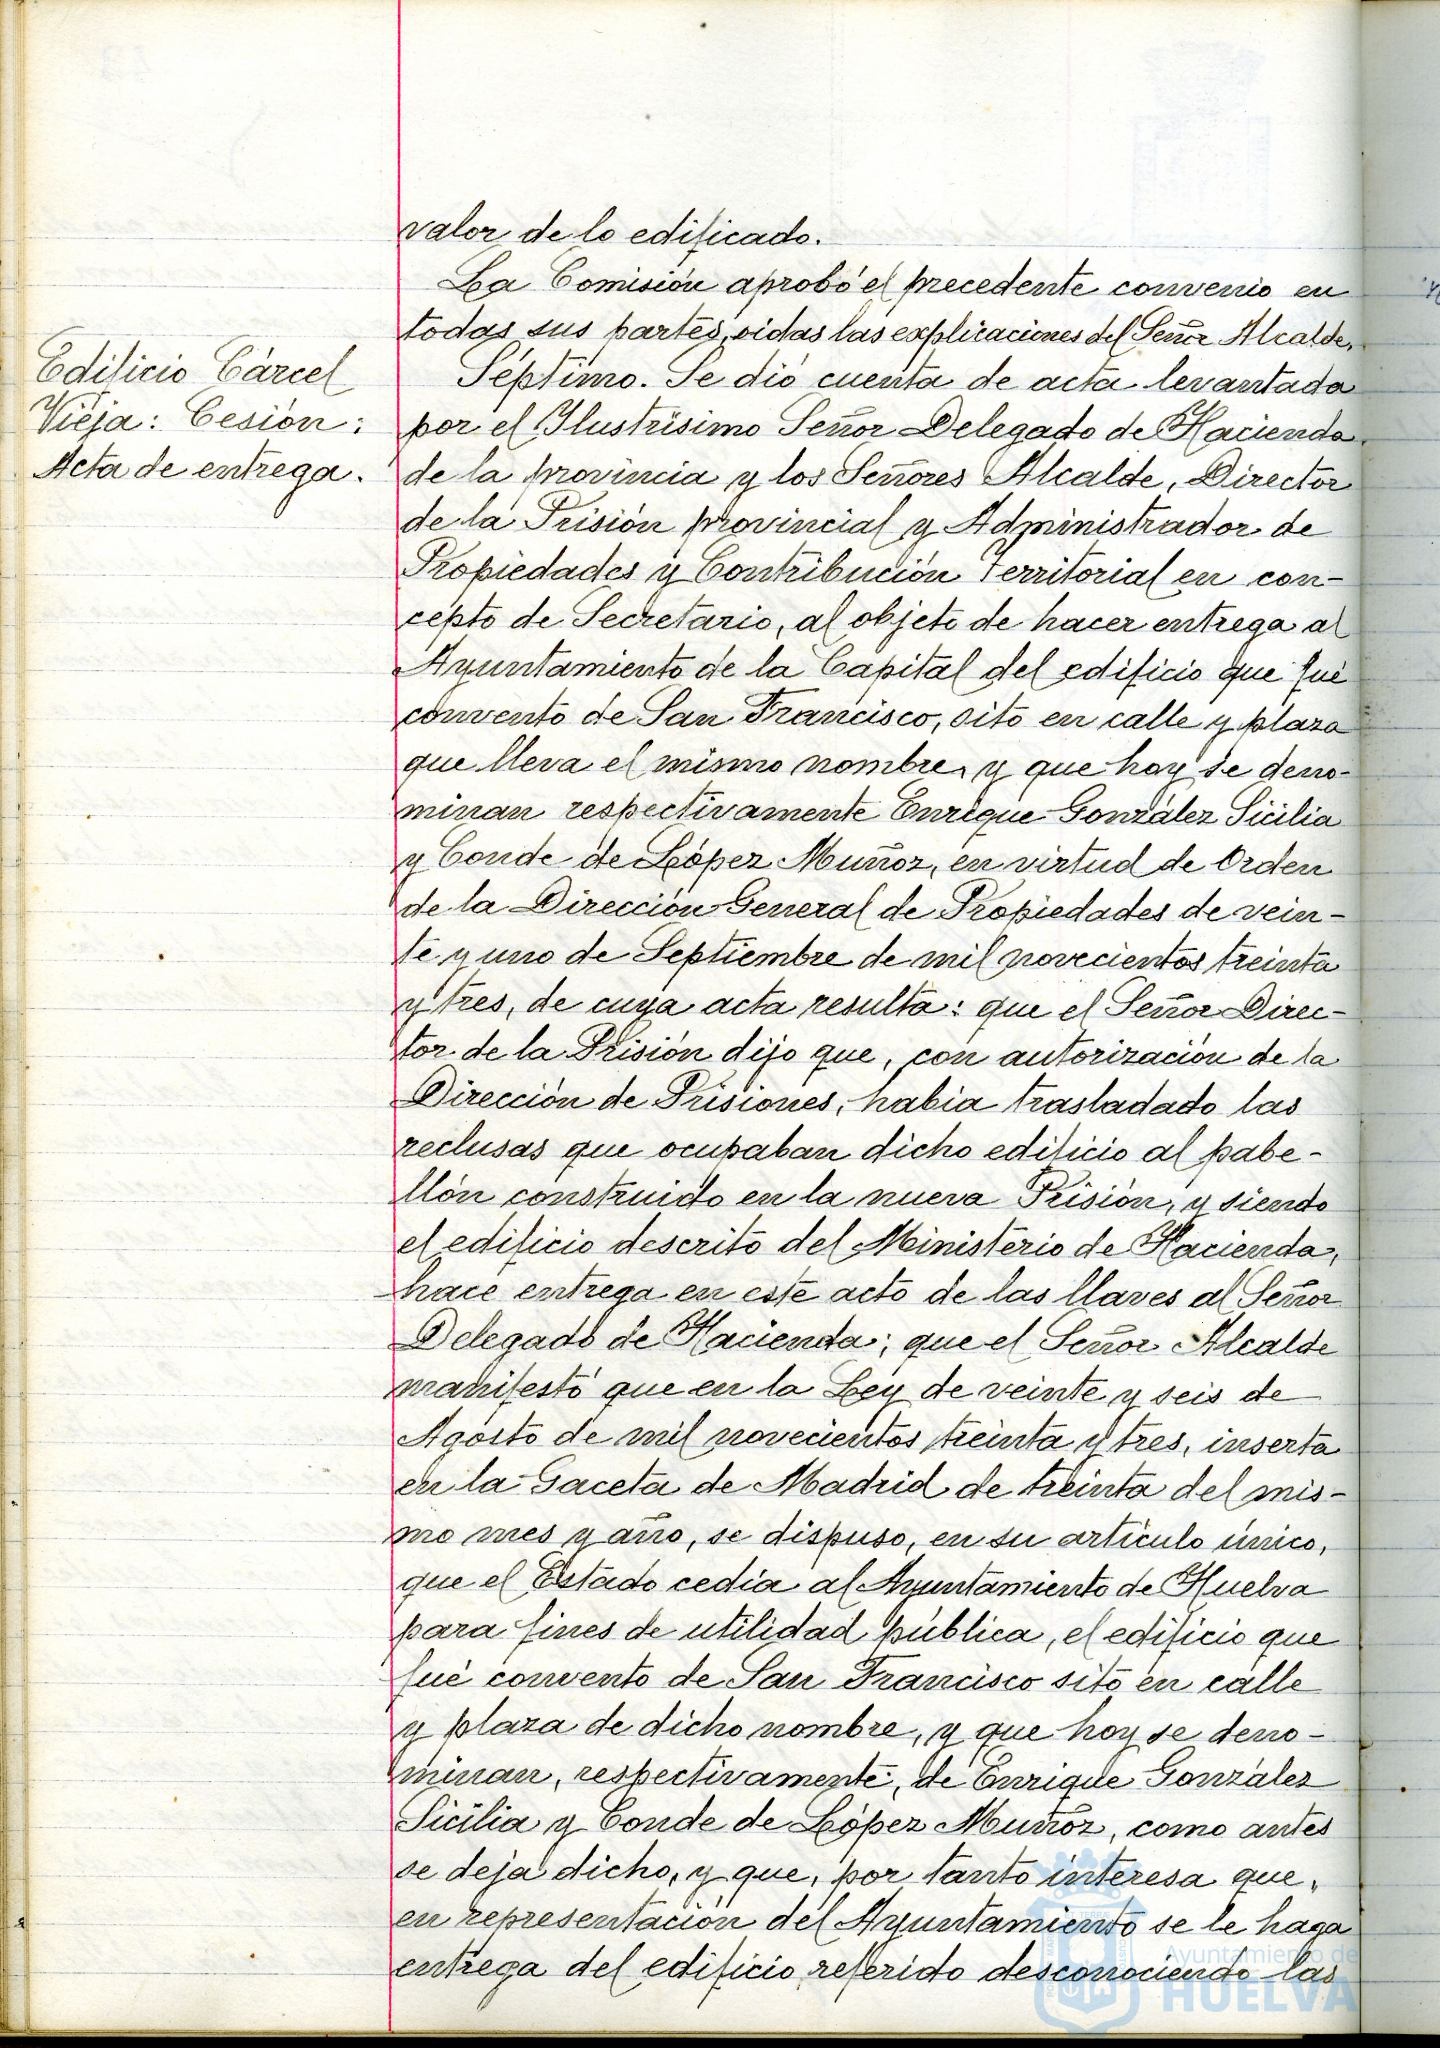 valor de lo edificado.
La Comisión aprobó el precedente convenio en
todas sus partes, oidas las explicaciones del Señor Alcalde.
Edificio Cárcel
Vieja: Cesión:
Acta de entrega.
Séptimo. Se dió cuenta de acta levantada
por el Ilustrísimo Señor Delegado de Hacienda
de la provincia y los Señores Alcalde, Director
de la Prisión provincial y Administrador de
Propiedades y Contribución Territorial en con-
cepto de Secretario, al objeto de hacer entrega al
Ayuntamiento de la Capital del edificio que fué
convento de San Francisco, sito en calle y plaza
que lleva el mismo nombre, y que hoy se deno-
minan respectivamente Enrique González Sicilia
y Conde de López Muñoz, en virtud de Orden
de la Dirección General de Propiedades de vein-
te y uno de Septiembre de mil novecientos treinta
y tres, de cuya acta resulta: que el Señor Direc-
tor de la Prisión dijo que, con autorización de la
Dirección de Prisiones, había trasladado las
reclusas que ocupaban dicho edificio al pabe-
llón construido en la nueva Prisión, y siendo
el edificio descrito del Ministerio de Hacienda,
hace entrega en este acto de las llaves al Señor
Delegado de Hacienda; que el Señor Alcalde
manifestó que en la Ley de veinte y seis de
Agosto de mil novecientos treinta y tres, inserta
en la Gaceta de Madrid de treinta del mis-
mo mes y año, se dispuso, en su artículo único,
que el Estado cedía al Ayuntamiento de Huelva
para fines de utilidad pública, el edificio que
fué convento de San Francisco sito en calle
y plaza de dicho nombre, y que hoy se deno-
minan, respectivamente, de Enrique González
Sicilia y Conde de López Muñoz, como antes
se deja dicho, y que, por tanto interesa que,
en representación del Ayuntamiento se le haga
entrega del edificio referido desconociendo las
Ayuntamiento de
HUELVA